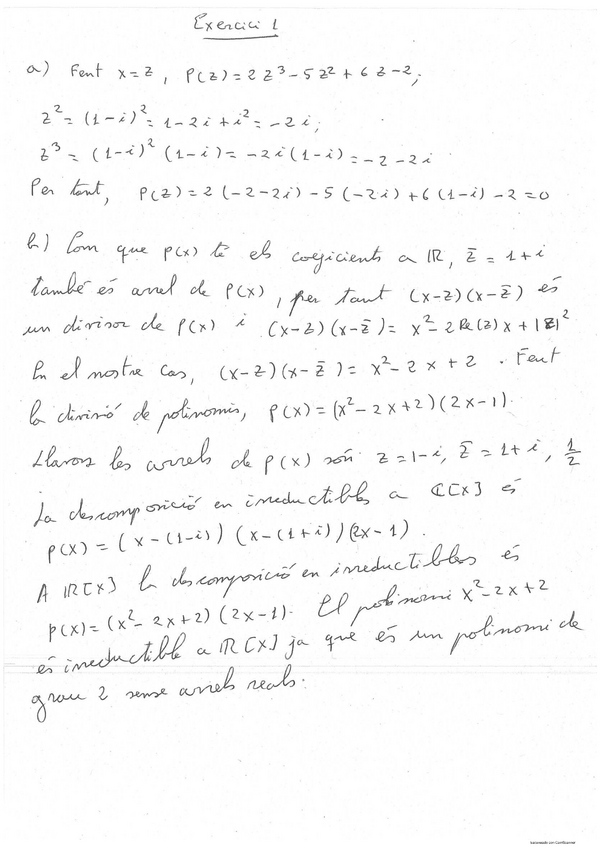 Exercici 1
a) Fent x=z, P(z)=2z³-5z²+6z-2;
z²=(1-i)²=1-2i+i²=-2i;
z³=(1-i)²(1-i)=-2i(1-i)=-2-2i
Per tant, P(z)=2(-2-2i)-5(-2i)+6(1-i)-2=0
b) Com que P(x) té els coeficients a ℝ, z̄=1+i
també és arrel de P(x), per tant (x-z)(x-z̄) és
un divisor de P(x) i (x-z)(x-z̄)=x²-2Re(z)x+|z|²
En el nostre cas, (x-z)(x-z̄)=x²-2x+2. Fent
la divisió de polinomis, P(x)=(x²-2x+2)(2x-1).
Llavors les arrels de P(x) són z=1-i, z̄=1+i, 1/2
La descomposició en irreductibles a ℂ[x] és
P(x)=(x-(1-i))(x-(1+i))(2x-1).
A ℝ[x] la descomposició en irreductibles és
P(x)=(x²-2x+2)(2x-1). El polinomi x²-2x+2
és irreductible a ℝ[x] ja que és un polinomi de
grau 2 sense arrels reals.